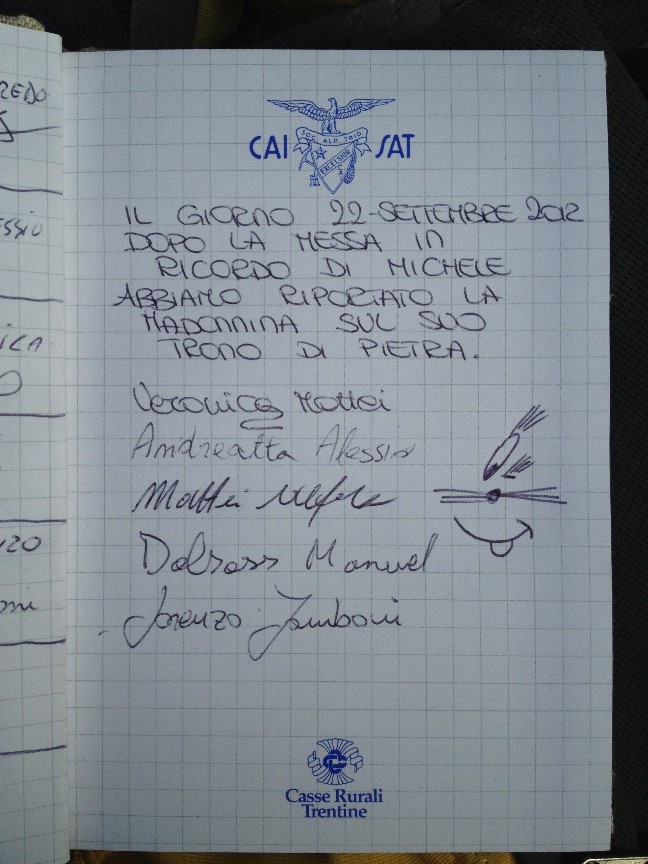 REDO
SOC. ALP. TRID.
CAI SAT
EXCELSIOR
IL GIORNO 22-SETTEMBRE 2012
DOPO LA MESSA IN
RICORDO DI MICHELE
ABBIAMO RIPORTATO LA
MADONNINA SUL SUO
TRONO DI PIETRA.
Veronica Mattei
Andreatta Alessio
Mattei
Dalsass Manuel
Lorenzo Zamboni
Casse Rurali
Trentine